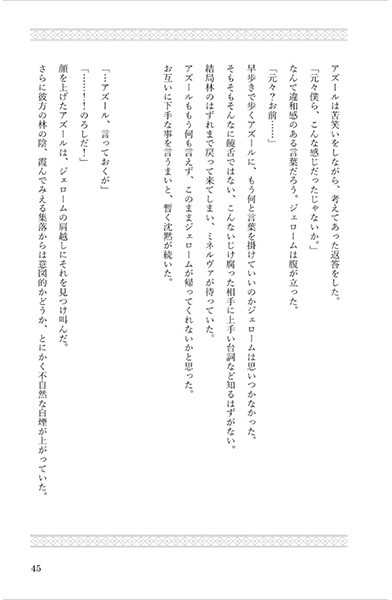 アズールは苦笑いをしながら、考えてあった返答をした。
「元々僕ら、こんな感じだったじゃないか。」
なんて違和感のある言葉だろう。ジェロームは腹が立った。
「元々？お前……」
早歩きで歩くアズールに、もう何と言葉を掛けていいのかジェロームは思いつかなかった。
そもそもそんなに饒舌ではない、こんないじけ腐った相手に上手い台詞など知るはずがない。
結局林のはずれまで戻って来てしまい、ミネルヴァが待っていた。
アズールももう何も言えず、このままジェロームが帰ってくれないかと思った。
お互いに下手な事を言うまいと、暫く沈黙が続いた。
「…アズール、言っておくが」
「……！！のろしだ！」
顔を上げたアズールは、ジェロームの肩越しにそれを見つけ叫んだ。
さらに彼方の林の陰、霞んでみえる集落からは意図的かどうか、とにかく不自然な白煙が上がっていた。
45